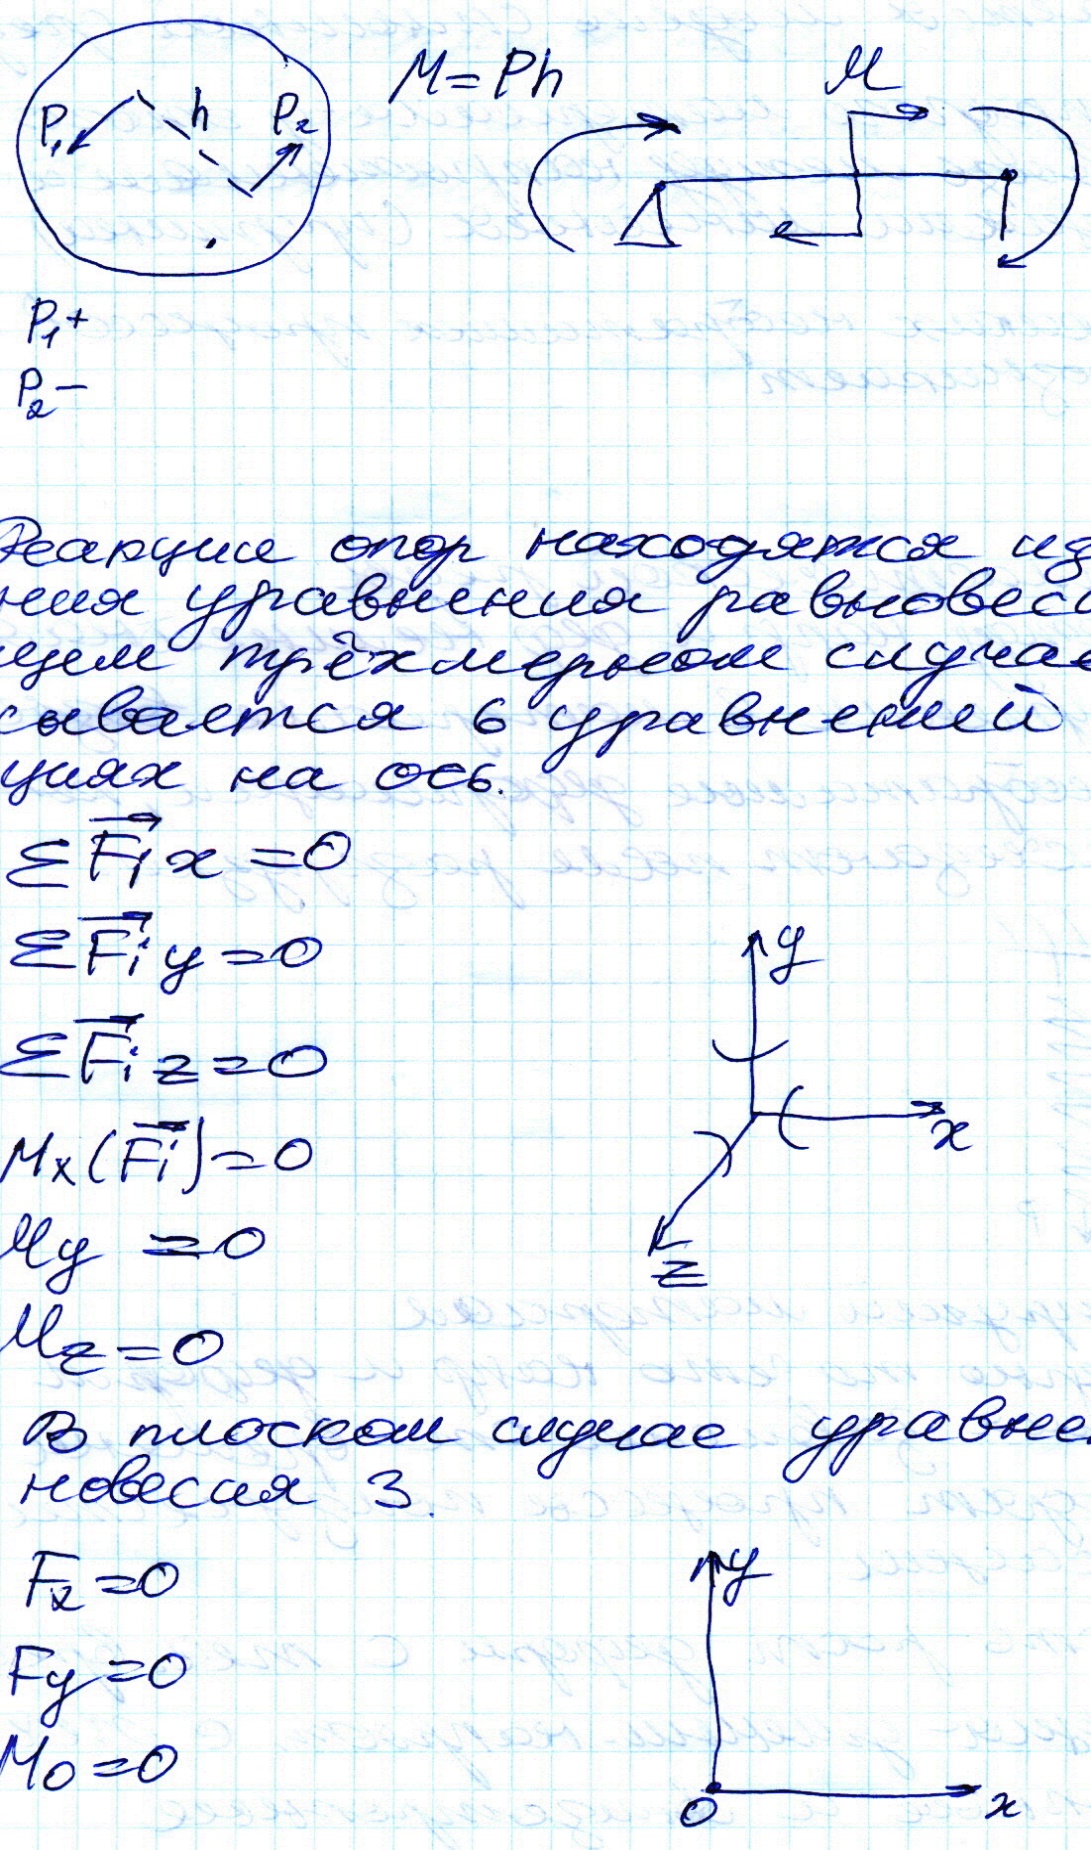 P₁ h P₂ M = Ph M
P₁ +
P₂ −
Реакции опор находятся из
ния уравнения равновеси
щем трёхмерном случае
сывается 6 уравнений
циях на ось.
ΣF⃗i x = 0
ΣF⃗i y = 0
ΣF⃗i z = 0
y
x
z
Mx(F⃗i) = 0
My = 0
Mz = 0
В плоском случае уравне
новесия 3.
Fx = 0
Fy = 0
Mo = 0
y
O x